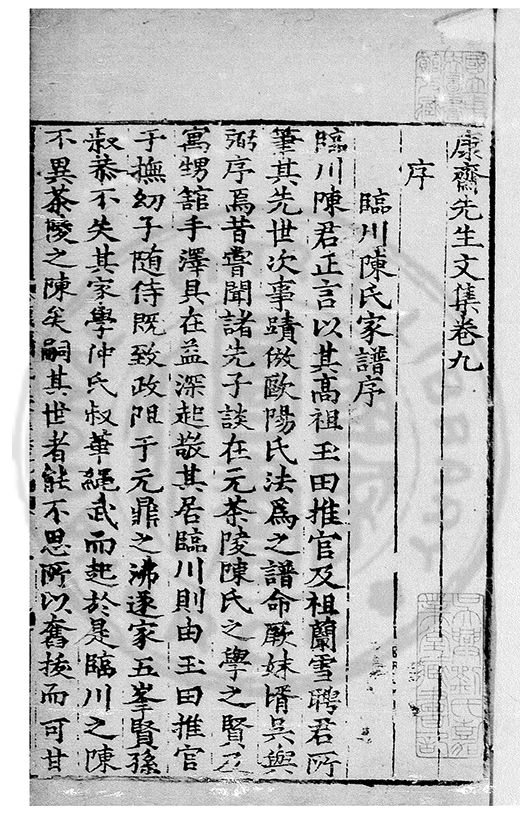 康齋先生文集卷九
序
臨川陳氏家譜序
臨川陳君正言以其高祖玉田推官及祖蘭雪聘君所
筆其先世次事蹟倣歐陽氏法爲之譜命厥妹壻吳與
弼序焉昔嘗聞諸先子談在元茶陵陳氏之學之賢及
寓甥舘手澤具在益深起敬其居臨川則由玉田推官
于撫幼子随侍既致政阻于元鼎之沸遂家五峯賢孫
叔恭不失其家學仲氏叔華繩武而起於是臨川之陳
不異茶陵之陳矣嗣其世者能不思所以奮拔而可甘